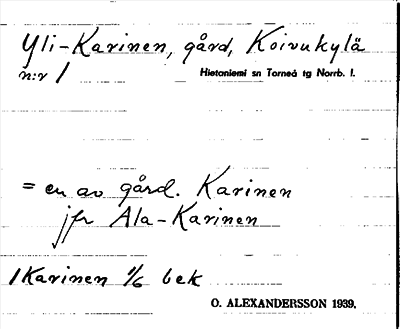 Yli-Karinen, gård, Koivukylä
n:r 1 Hietaniemi sn Torneå tg Norrb. l.
= en av gård. Karinen
jfr Ala-Karinen
1 Karinen 1/6 bek
O. ALEXANDERSSON 1939.